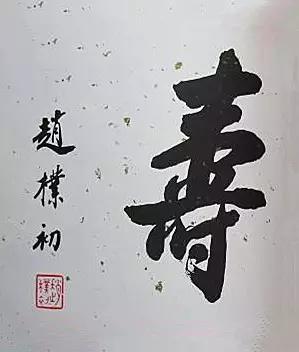 壽
趙樸初